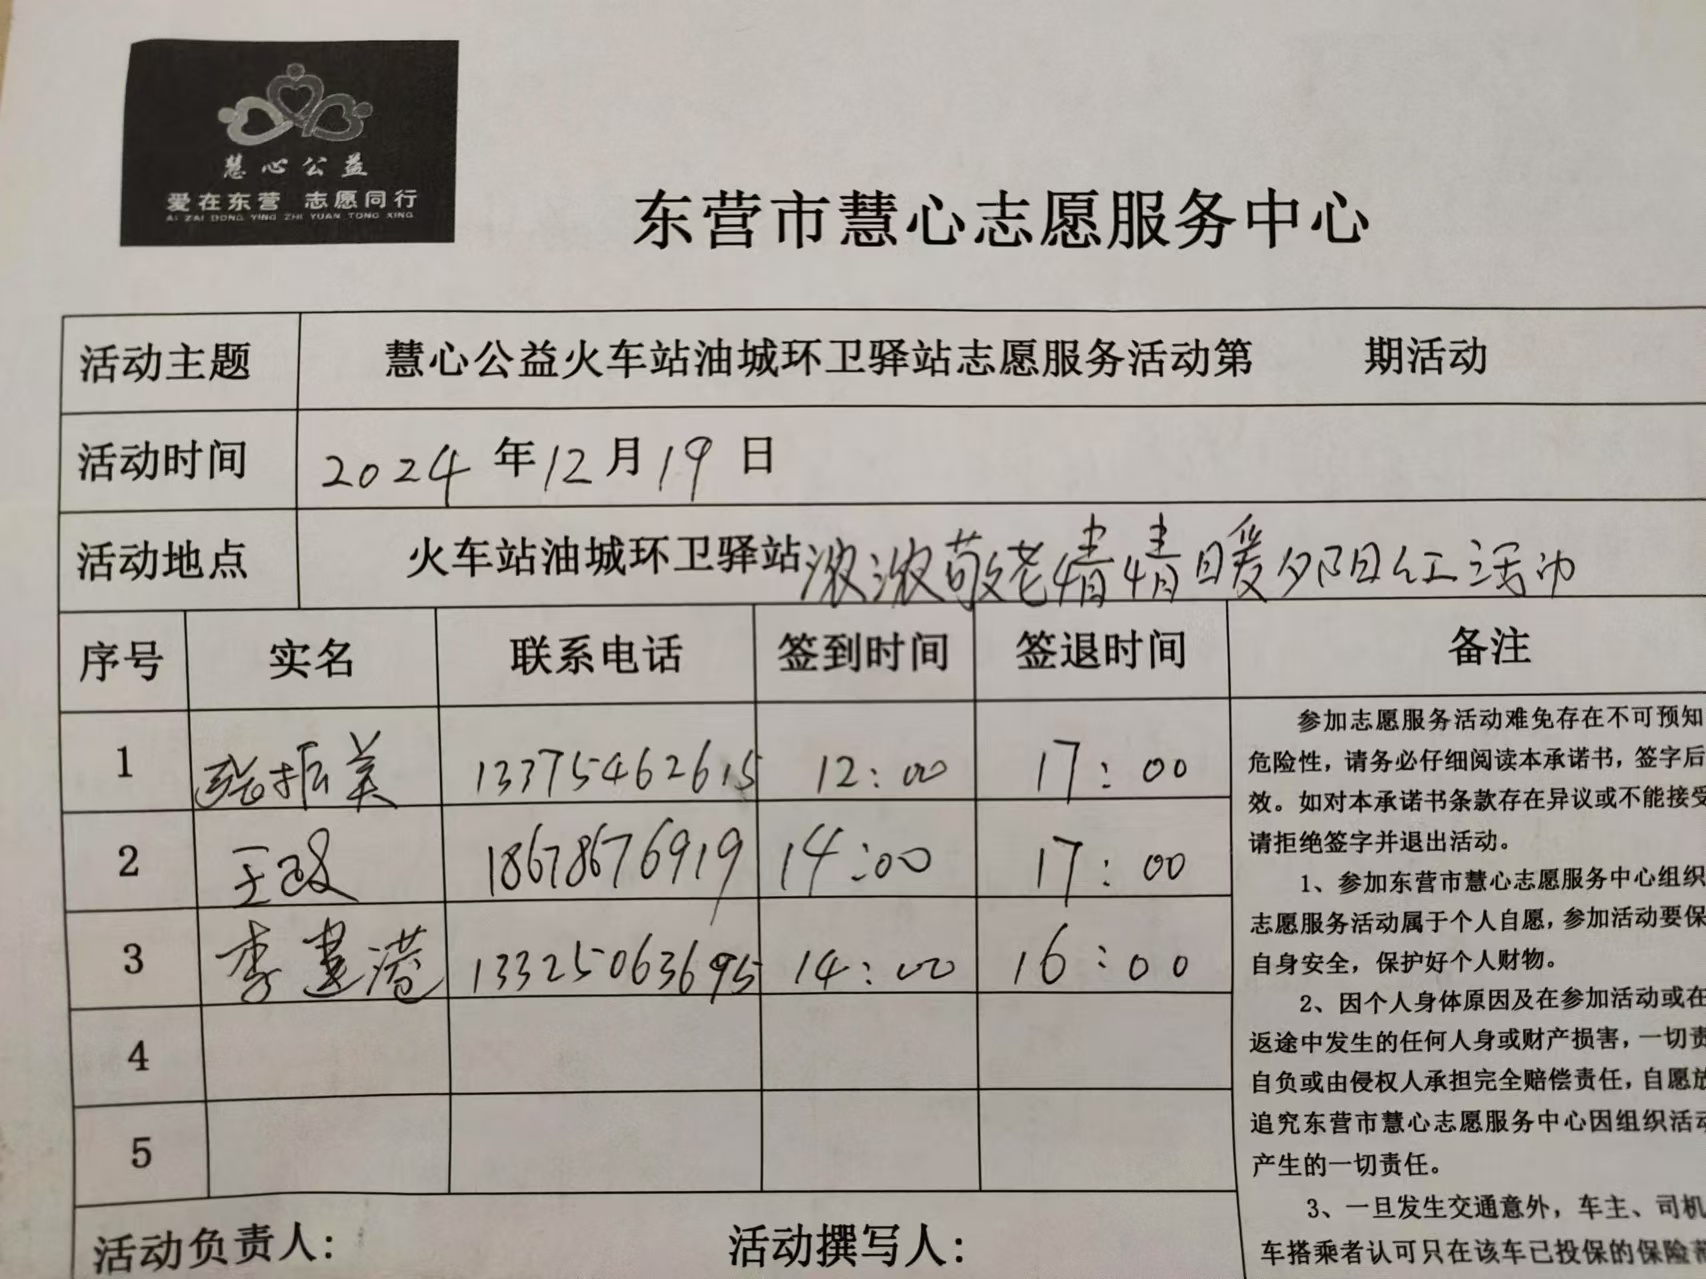 慧心公益
爱在东营 志愿同行
AI ZAI DONG YING ZHI YUAN TONG XING
东营市慧心志愿服务中心
活动主题 慧心公益火车站油城环卫驿站志愿服务活动第 期活动
活动时间 2024 年 12 月 19 日
活动地点 火车站油城环卫驿站浓浓敬老情情暖夕阳红活动
序号 实名 联系电话 签到时间 签退时间 备注
1 张振美 13375462615 12:00 17:00
2 王政 18678676919 14:00 17:00
3 李建港 13325063695 14:00 16:00
4
5
参加志愿服务活动难免存在不可预知
危险性，请务必仔细阅读本承诺书，签字后
效。如对本承诺书条款存在异议或不能接受
请拒绝签字并退出活动。
1、参加东营市慧心志愿服务中心组织
志愿服务活动属于个人自愿，参加活动要保
自身安全，保护好个人财物。
2、因个人身体原因及在参加活动或在
返途中发生的任何人身或财产损害，一切责
自负或由侵权人承担完全赔偿责任，自愿放
追究东营市慧心志愿服务中心因组织活动
产生的一切责任。
3、一旦发生交通意外，车主、司机
车搭乘者认可只在该车已投保的保险
活动负责人： 活动撰写人：